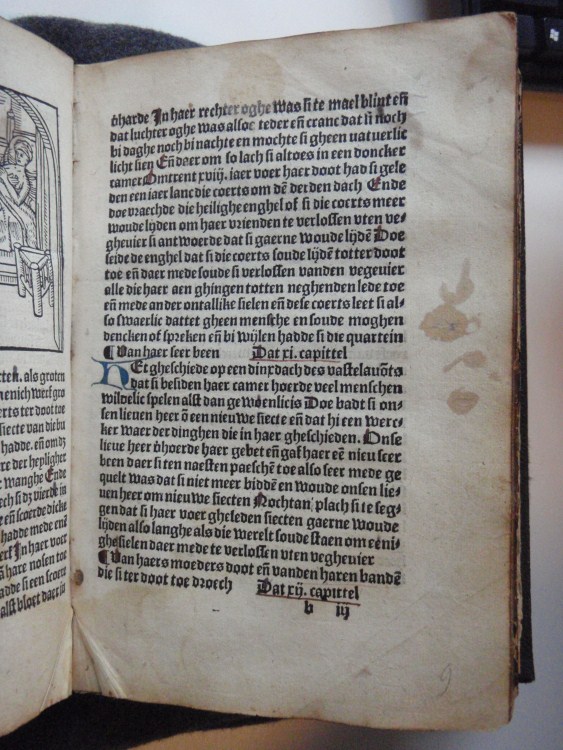 cten. als groten
menich werf gro
erts ter doot toe
siecte van die bu
hadde. eñ om dz
re der heyligher
wanghe Ende
ech si dz vierde in
eñ scoerde dicke
hadde mede eñt
erf In haer voer
ñ hare nosen toe
adde si een scoere
alst bloet daer in
ðharde In haer rechter oghe was si te mael blint eñ
dat luchter oghe was alsoe teder eñ cranc dat si noch
bi daghe noch bi nachte en mochte si gheen natuerlic
licht sien Eñ daer om so lach si altoes in een doncker
camer Omtrent xviij. iaer voer haer doot had si gele
den een iaer lanc die coerts om dē derden dach Ende
doe vraechde die heilighe enghel of si die coerts meer
woude lijden om haer vrienden te verlossen vten ve-
ghevier si antwoerde dat si gaerne woude lijdē Doe
seide de enghel dat si die coerts soude lijdē totter doot
toe eñ daer mede soude si verlossen vanden vegevier
alle die haer aen ghingen totten neghenden lede toe
eñ mede ander ontallike sielen eñ dese coerts leet si al-
so swaerlic dattet gheen mensche en soude moghen
dencken of spreken eñ bi wijlen hadde si die quartein
Van haer seer been Dat xi. capittel
HEt gheschiede op een dinxdach des vastelauōts
dat si besiden haer camer hoerde veel menschen
wildelic spelen alst dan gewoenlicis Doe badt si on-
sen lieuen heer ō een nieuwe siecte eñ dat hi een werc-
ker waer der dinghen die in haer gheschieden. Onse
lieue heer ðhoerde haer gebet eñ gaf haer eē nieu seer
been daer si ten naesten paeschē toe also seer mede ge
quelt was dat si niet meer biddē en woude onsen lie-
uen heer om nieuwe siecten Nochtan plach si te seg-
gen dat si haer voer gheleden siecten gaerne woude
lijden also langhe als die werelt soude staen om eeni-
ghe sielen daer mede te verlossen vten veghevier
Van haers moeders doot eñ vanden haren bandē
die si ter doot toe droech Dat xij. capittel
b iij
9